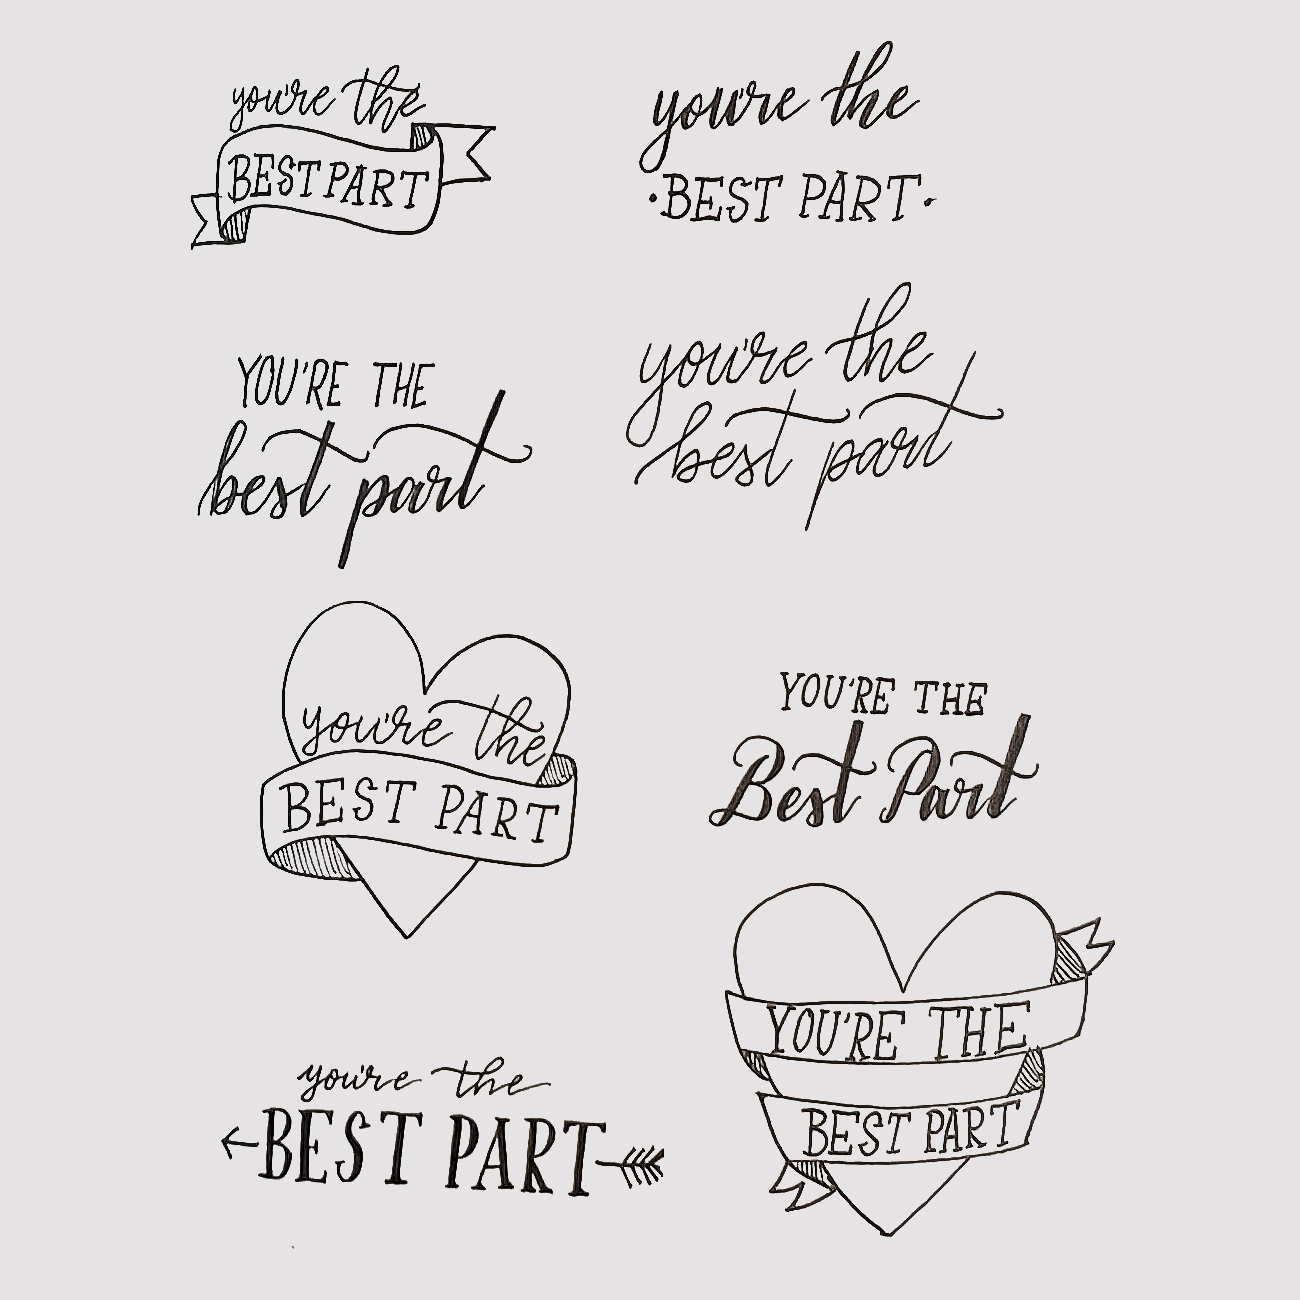 you're the
BEST PART
you're the
·BEST PART·
YOU'RE THE
best part
you're the
best part
you're the
BEST PART
YOU'RE THE
Best Part
you're the
BEST PART
YOU'RE THE
BEST PART